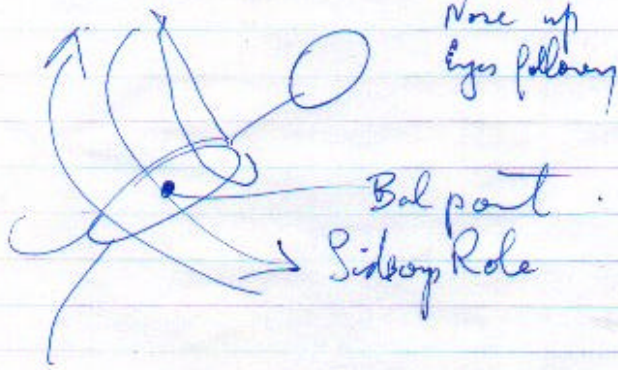 Nose up
Eyes following
Bal point
Sideways Role